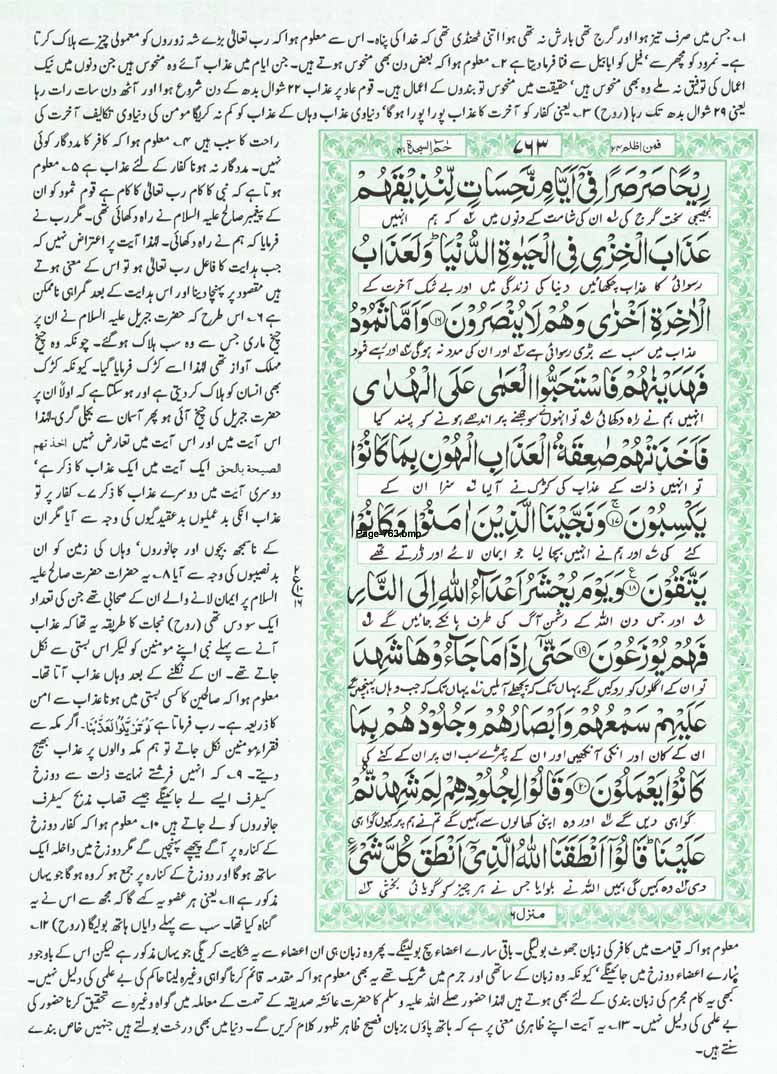 ۱۔ جس میں صرف تیز ہوا اور گرج تھی بارش نہ تھی ہوا اتنی ٹھنڈی تھی کہ خدا کی پناہ۔ اس سے معلوم ہوا کہ رب تعالیٰ بڑے شہ زوروں کو معمولی چیز سے ہلاک کرتا
ہے۔ نمرود کو مچھر سے، فیل کو ابابیل سے فنا فرما دیتا ہے ۲۔ معلوم ہوا کہ بعض دن بھی منحوس ہوتے ہیں۔ جن ایام میں عذاب آئے وہ منحوس ہیں جن دنوں میں نیک
اعمال کی توفیق نہ ملے وہ بھی منحوس ہیں، حقیقت میں منحوس تو بندوں کے اعمال ہیں۔ قوم عاد پر عذاب ۲۲ شوال بدھ کے دن شروع ہوا اور آٹھ دن سات رات رہا
یعنی ۲۹ شوال بدھ تک رہا (روح) ۳۔ یعنی کفار کو آخرت کا عذاب پورا پورا ہو گا، دنیاوی عذاب وہاں کے عذاب کو کم نہ کریگا مومن کی دنیاوی تکالیف آخرت کی
راحت کا سبب ہیں ۴۔ معلوم ہوا کہ کافر کا مددگار کوئی
نہیں۔ مددگار نہ ہونا کفار کے لئے عذاب ہے ۵۔ معلوم
ہوتا ہے کہ نبی کا کام رب تعالیٰ کا کام ہے قوم ثمود کو ان
کے پیغمبر صالح علیہ السلام نے راہ دکھائی تھی۔ مگر رب نے
فرمایا کہ ہم نے راہ دکھائی۔ لہٰذا آیت پر اعتراض نہیں کہ
جب ہدایت کا فاعل رب تعالیٰ ہو تو اس کے معنی ہوتے
ہیں مقصود پر پہنچا دینا اور اس ہدایت کے بعد گمراہی ناممکن
ہے ۶۔ اس طرح کہ حضرت جبریل علیہ السلام نے ان پر
چیخ ماری جس سے وہ سب ہلاک ہو گئے۔ چونکہ وہ چیخ
مہلک آواز تھی لہٰذا اسے کڑک فرمایا گیا۔ کیونکہ کڑک
بھی انسان کو ہلاک کر دیتی ہے اور ہو سکتا ہے کہ اولاً ان پر
حضرت جبریل کی چیخ آئی ہو پھر آسمان سے بجلی گری۔ لہٰذا
اس آیت میں اور اس آیت میں تعارض نہیں اخذتهم
الصيحة بالحق ایک آیت میں ایک عذاب کا ذکر ہے،
دوسری آیت میں دوسرے عذاب کا ذکر ۷۔ کفار پر تو
عذاب انکی بد عملیوں بد عقیدگیوں کی وجہ سے آیا مگر ان
کے ناسمجھ بچوں اور جانوروں، وہاں کی زمین کو ان
بدنصیبوں کی وجہ سے آیا ۸۔ یہ حضرات حضرت صالح علیہ
السلام پر ایمان لانے والے ان کے صحابی تھے جن کی تعداد
ایک سو دس تھی (روح) نجات کا طریقہ یہ تھا کہ عذاب
آنے سے پہلے نبی اپنے مومنین کو لیکر اس بستی سے نکل
جاتے تھے۔ ان کے نکلنے کے بعد وہاں عذاب آتا تھا۔
معلوم ہوا کہ صالحین کا کسی بستی میں ہونا عذاب سے امن
کا ذریعہ ہے۔ رب فرماتا ہے لَوْ تَزَيَّلُوْا لَعَذَّبْنَا۔ اگر مکہ سے
فقراء مومنین نکل جاتے تو ہم مکہ والوں پر عذاب بھیج
دیتے۔ ۹۔ کہ انہیں فرشتے نہایت ذلت سے دوزخ
کیطرف ایسے لے جائینگے جیسے قصاب مذبح کیطرف
جانوروں کو لے جاتے ہیں ۱۰۔ معلوم ہوا کہ کفار دوزخ
کے کنارہ پر آگے پیچھے پہنچیں گے مگر دوزخ میں داخلہ ایک
ساتھ ہو گا اور دوزخ کے کنارہ پر جمع ہو کر وہ ہو گا جو یہاں
مذکور ہے ۱۱۔ یعنی ہر عضو یہ کہے گا کہ مجھ سے اس نے یہ
گناہ کیا تھا۔ سب سے پہلے دایاں ہاتھ بولیگا (روح) ۱۲۔
فمن اظلم ۲۴
۷۶۳
حٰمٓ السجدۃ ۴۱
رِيْحًا صَرْصَرًا فِيْٓ اَيَّامٍ نَّحِسَاتٍ لِّنُذِيْقَهُمْ
بھیجی سخت گرج کی ۱ ان کی شامت کے دنوں میں ۲ کہ ہم انہیں
عَذَابَ الْخِزْيِ فِي الْحَيٰوةِ الدُّنْيَا ؕ وَلَعَذَابُ
رسوائی کا عذاب چکھائیں دنیا کی زندگی میں اور بے شک آخرت کے
الْاٰخِرَةِ اَخْزٰى وَهُمْ لَا يُنْصَرُوْنَ ۝۱۶ وَاَمَّا ثَمُوْدُ
عذاب میں سب سے بڑی رسوائی ہے ۳ اور ان کی مدد نہ ہوگی ۴ اور رہے ثمود
فَهَدَيْنٰهُمْ فَاسْتَحَبُّوا الْعَمٰى عَلَى الْهُدٰى
انہیں ہم نے راہ دکھائی ۵ تو انہوں نے سوجھنے پر اندھے ہونے کو پسند کیا
فَاَخَذَتْهُمْ صٰعِقَةُ الْعَذَابِ الْهُوْنِ بِمَا كَانُوْا
تو انہیں ذلت کے عذاب کی کڑک نے آلیا ۶ سزا ان کے
يَكْسِبُوْنَ ۝۱۷ وَنَجَّيْنَا الَّذِيْنَ اٰمَنُوْا وَكَانُوْا
Page-763.bmp
کئے کی ۷ اور ہم نے انہیں بچا لیا جو ایمان لائے اور ڈرتے تھے
يَتَّقُوْنَ ۝۱۸ وَيَوْمَ يُحْشَرُ اَعْدَآءُ اللّٰهِ اِلَى النَّارِ
۸ اور جس دن اللہ کے دشمن آگ کی طرف ہانکے جائیں گے ۹
فَهُمْ يُوْزَعُوْنَ ۝۱۹ حَتّٰٓى اِذَا مَا جَآءُوْهَا شَهِدَ
تو ان کے اگلوں کو روکیں گے یہاں تک کہ پچھلے آ ملیں ۱۰ یہاں تک کہ جب وہاں پہنچیں گے
عَلَيْهِمْ سَمْعُهُمْ وَاَبْصَارُهُمْ وَجُلُوْدُهُمْ بِمَا
ان کے کان اور انکی آنکھیں اور ان کے چمڑے سب ان پر ان کے کئے کی
كَانُوْا يَعْمَلُوْنَ ۝۲۰ وَقَالُوْا لِجُلُوْدِهِمْ لِمَ شَهِدْتُّمْ
گواہی دیں گے ۱۱ اور وہ اپنی کھالوں سے کہیں گے تم نے ہم پر کیوں گواہی
عَلَيْنَا ؕ قَالُوْٓا اَنْطَقَنَا اللّٰهُ الَّذِيْٓ اَنْطَقَ كُلَّ شَيْءٍ
دی ۱۲ وہ کہیں گی ہمیں اللہ نے بلوایا جس نے ہر چیز کو گویائی بخشی ۱۳
منزل ۶
۲
ع
۱۶
معلوم ہوا کہ قیامت میں کافر کی زبان جھوٹ بولیگی۔ باقی سارے اعضاء سچ بولینگے۔ پھر وہ زبان ہی ان اعضاء سے یہ شکایت کریگی جو یہاں مذکور ہے لیکن اس کے باوجود
سارے اعضاء دوزخ میں جائینگے، کیونکہ وہ زبان کے ساتھی اور جرم میں شریک تھے یہ بھی معلوم ہوا کہ مقدمہ قائم کرنا گواہی وغیرہ لینا حاکم کی بے علمی کی دلیل نہیں۔
کبھی یہ کام مجرم کی زبان بندی کے لئے بھی ہوتے ہیں لہٰذا حضور صلے اللہ علیہ وسلم کا حضرت عائشہ صدیقہ کے تہمت کے معاملہ میں گواہ وغیرہ سے تحقیق کرنا حضور کی
بے علمی کی دلیل نہیں۔ ۱۳۔ یہ آیت اپنے ظاہری معنی پر ہے کہ ہاتھ پاؤں بزبان فصیح ظاہر ظہور کلام کریں گے۔ دنیا میں بھی درخت بولتے ہیں جنہیں خاص بندے
سنتے ہیں۔